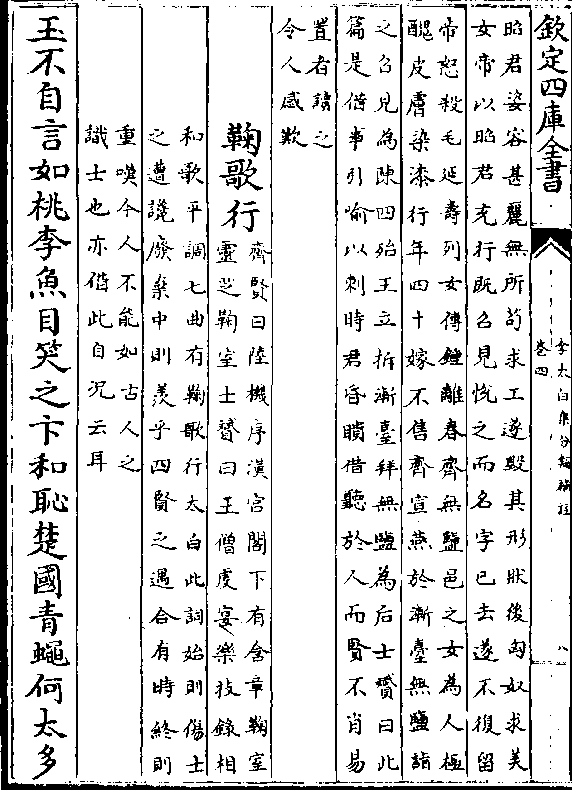 欽定四庫全書
李太白集分類補註
卷四
八
昭君姿容甚麗無所苟求工遂毀其形狀後匈奴求美
女帝以昭君充行既召見悅之而名字已去遂不復留
帝怒殺毛延壽列女傳鍾離春齊無鹽邑之女為人極
醜皮膚染漆行年四十嫁不售齊宣燕於漸臺無鹽詣
之召見為陳四殆王立拆漸臺拜無鹽為后士贇曰此
篇是借事引喻以刺時君昏瞶借聽於人而賢不肖易
置者讀之
令人感歎
鞠歌行
齊賢曰陸機序漢宮閣下有含章鞠室
靈芝鞠室士贇曰王僧虔宴樂技錄相
和歌平調七曲有鞠歌行太白此詞始則傷士
之遭讒廢棄中則羨乎四賢之遇合有時終則
重嘆今人不能如古人之
識士也亦借此自況云耳
玉不自言如桃李魚目笑之卞和恥楚國青蠅何太多